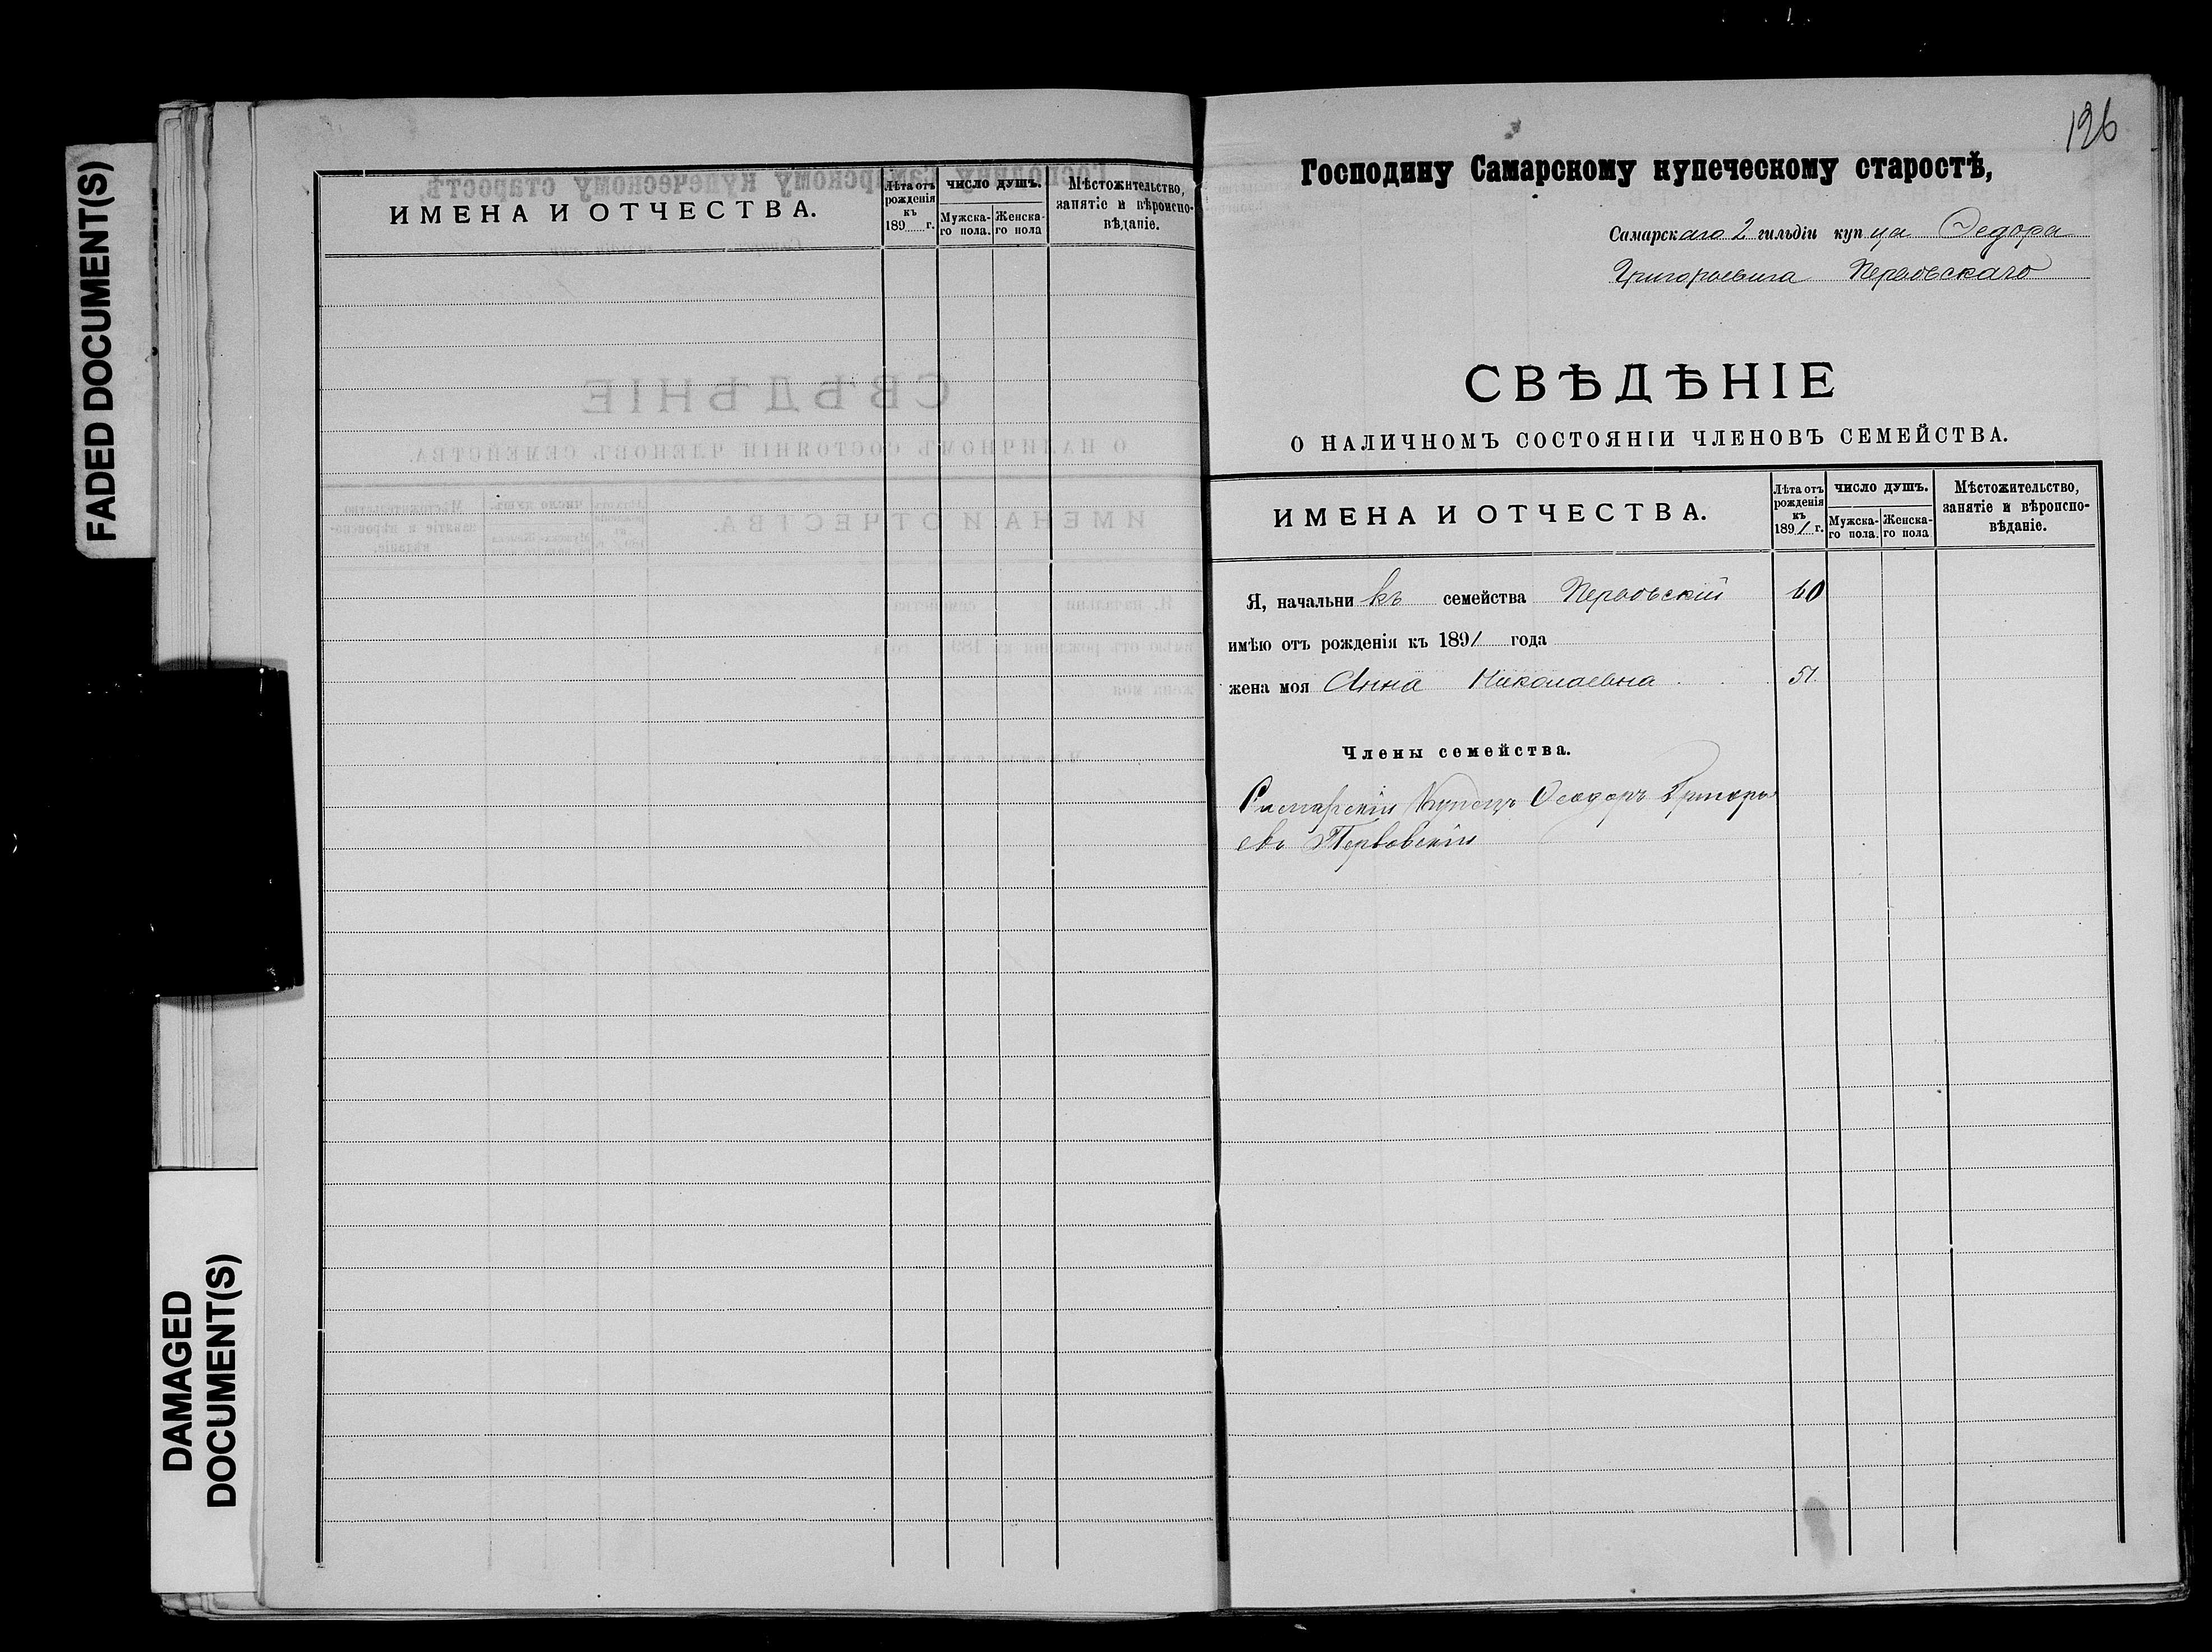 FADED DOCUMENT(S)
DAMAGED
DOCUMENT(S)
ИМЕНА И ОТЧЕСТВА.
Лѣта отъ
рожденія
къ
189 г.
число душъ.
Мужска-
го пола.
Женска-
го пола
Мѣстожительство,
занятіе и вѣроиспо-
вѣданіе.
126
Господину Самарскому купеческому старостѣ,
Самарскаго 2 гильдіи купца Федора
Григорьевича Перловскаго
СВѢДѢНІЕ
О НАЛИЧНОМЪ СОСТОЯНІИ ЧЛЕНОВЪ СЕМЕЙСТВА.
ИМЕНА И ОТЧЕСТВА.
Лѣта отъ
рожденія
къ
1891 г.
число душъ.
Мужска-
го пола.
Женска-
го пола
Мѣстожительство,
занятіе и вѣроиспо-
вѣданіе.
Я, начальникъ семейства Перловскій 60
имѣю отъ рожденія къ 1891 года
жена моя Анна Николаевна 51
Члены семейства.
Самарскій Купецъ Феодоръ Григорь
евъ Перловскій